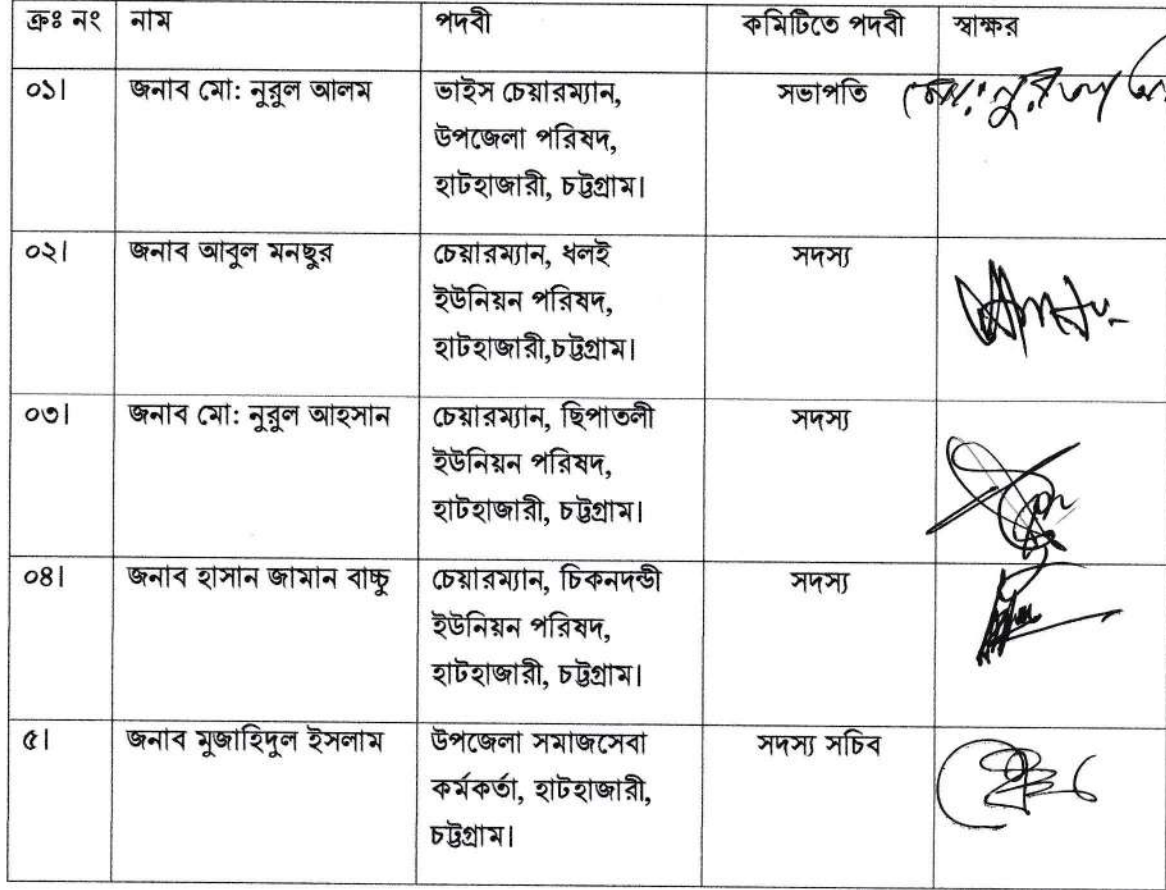 ক্রঃ নং নাম পদবী কমিটিতে পদবী স্বাক্ষর
০১। জনাব মো: নুরুল আলম ভাইস চেয়ারম্যান, সভাপতি মোঃ নুরুল
উপজেলা পরিষদ,
হাটহাজারী, চট্টগ্রাম।
০২। জনাব আবুল মনছুর চেয়ারম্যান, ধলই সদস্য
ইউনিয়ন পরিষদ,
হাটহাজারী,চট্টগ্রাম।
০৩। জনাব মো: নুরুল আহসান চেয়ারম্যান, ছিপাতলী সদস্য
ইউনিয়ন পরিষদ,
হাটহাজারী, চট্টগ্রাম।
০৪। জনাব হাসান জামান বাচ্চু চেয়ারম্যান, চিকনদন্ডী সদস্য
ইউনিয়ন পরিষদ,
হাটহাজারী, চট্টগ্রাম।
৫। জনাব মুজাহিদুল ইসলাম উপজেলা সমাজসেবা সদস্য সচিব
কর্মকর্তা, হাটহাজারী,
চট্টগ্রাম।